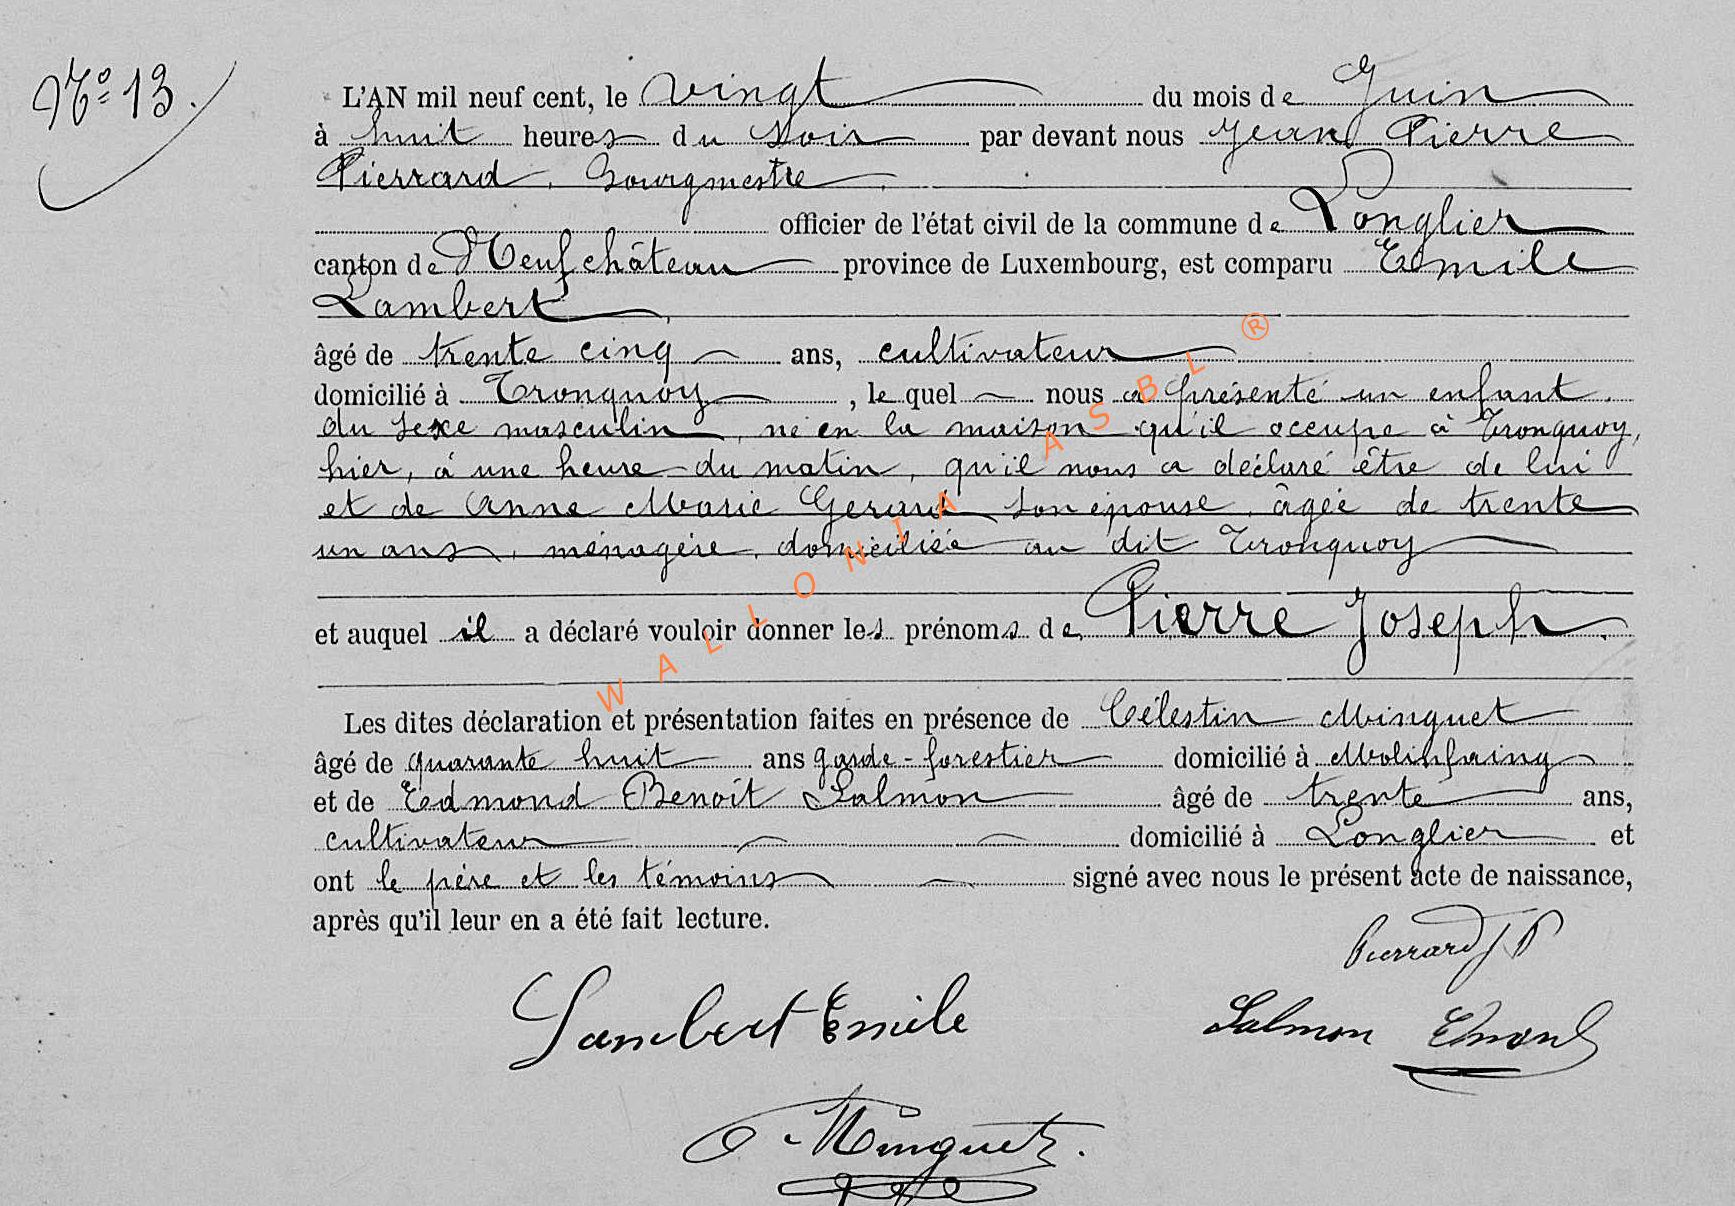 N° 13.
L'AN mil neuf cent, le vingt du mois de Juin
à huit heures du soir par devant nous Jean Pierre
Pierrard, Bourgmestre
officier de l'état civil de la commune de Longlier
canton de Neufchâteau province de Luxembourg, est comparu Emile
Lambert,
âgé de trente cinq ans, cultivateur
domicilié à Tronquoy, le quel nous a présenté un enfant
du sexe masculin, né en la maison qu'il occupe à Tronquoy,
hier, à une heure du matin, qu'il nous a déclaré être de lui
et de Anne Marie Gerard son épouse, âgée de trente
un ans, ménagère, domiciliée au dit Tronquoy
et auquel il a déclaré vouloir donner les prénoms de Pierre Joseph.
Les dites déclaration et présentation faites en présence de Célestin Minguet
âgé de quarante huit ans garde-forestier domicilié à Molinfaing
et de Edmond Benoît Salmon âgé de trente ans,
cultivateur domicilié à Longlier et
ont le père et les témoins signé avec nous le présent acte de naissance,
après qu'il leur en a été fait lecture.
Pierrard J P
Lambert Emile
Salmon Edmond
C. Minguet.
WALLONIA ASBL ®